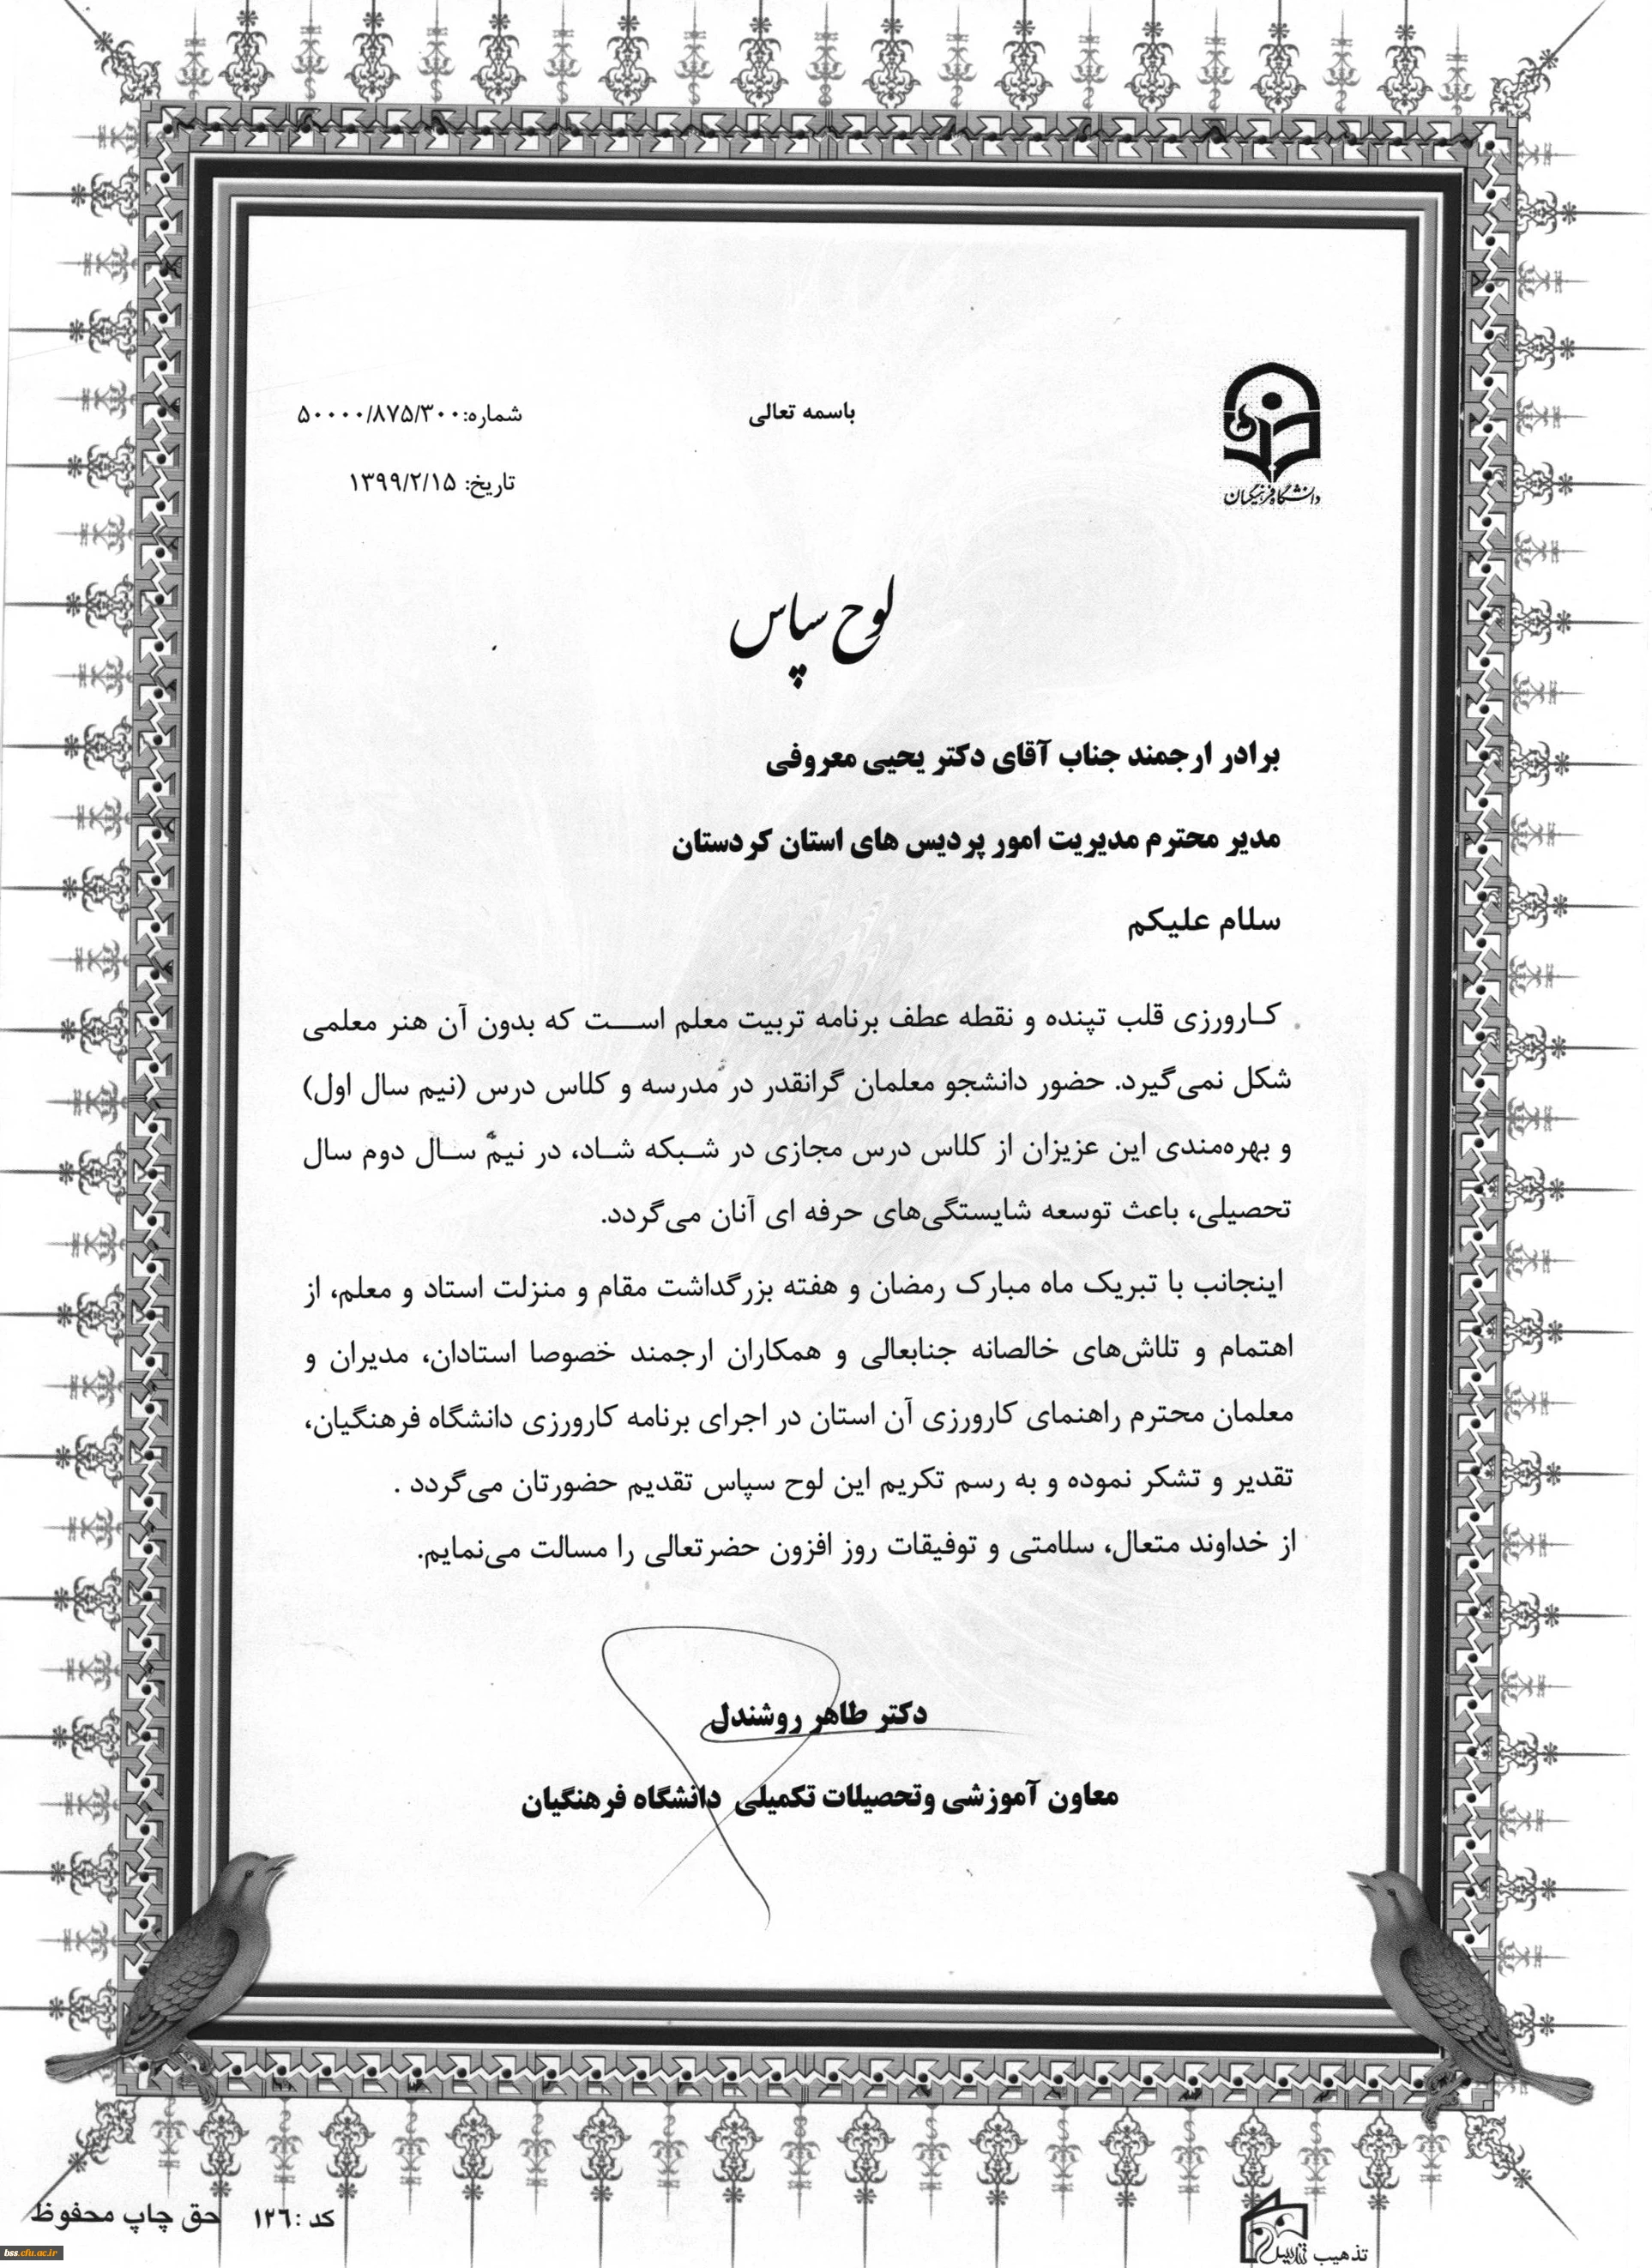 باسمه تعالی
شماره:۵۰۰۰۰/۸۷۵/۳۰۰
تاریخ: ۱۳۹۹/۲/۱۵
دانشگاه فرهنگیان
لوح سپاس
برادر ارجمند جناب آقای دکتر یحیی معروفی
مدیر محترم مدیریت امور پردیس های استان کردستان
سلام علیکم
کارورزی قلب تپنده و نقطه عطف برنامه تربیت معلم است که بدون آن هنر معلمی
شکل نمی‌گیرد. حضور دانشجو معلمان گرانقدر در مدرسه و کلاس درس (نیم سال اول)
و بهره‌مندی این عزیزان از کلاس درس مجازی در شبکه شاد، در نیم سال دوم سال
تحصیلی، باعث توسعه شایستگی‌های حرفه ای آنان می‌گردد.
اینجانب با تبریک ماه مبارک رمضان و هفته بزرگداشت مقام و منزلت استاد و معلم، از
اهتمام و تلاش‌های خالصانه جنابعالی و همکاران ارجمند خصوصا استادان، مدیران و
معلمان محترم راهنمای کارورزی آن استان در اجرای برنامه کارورزی دانشگاه فرهنگیان،
تقدیر و تشکر نموده و به رسم تکریم این لوح سپاس تقدیم حضورتان می‌گردد .
از خداوند متعال، سلامتی و توفیقات روز افزون حضرتعالی را مسالت می‌نمایم.
دکتر طاهر روشندل
معاون آموزشی وتحصیلات تکمیلی دانشگاه فرهنگیان
کد :۱۲۶ حق چاپ محفوظ
تذهیب
bss.cfu.ac.ir